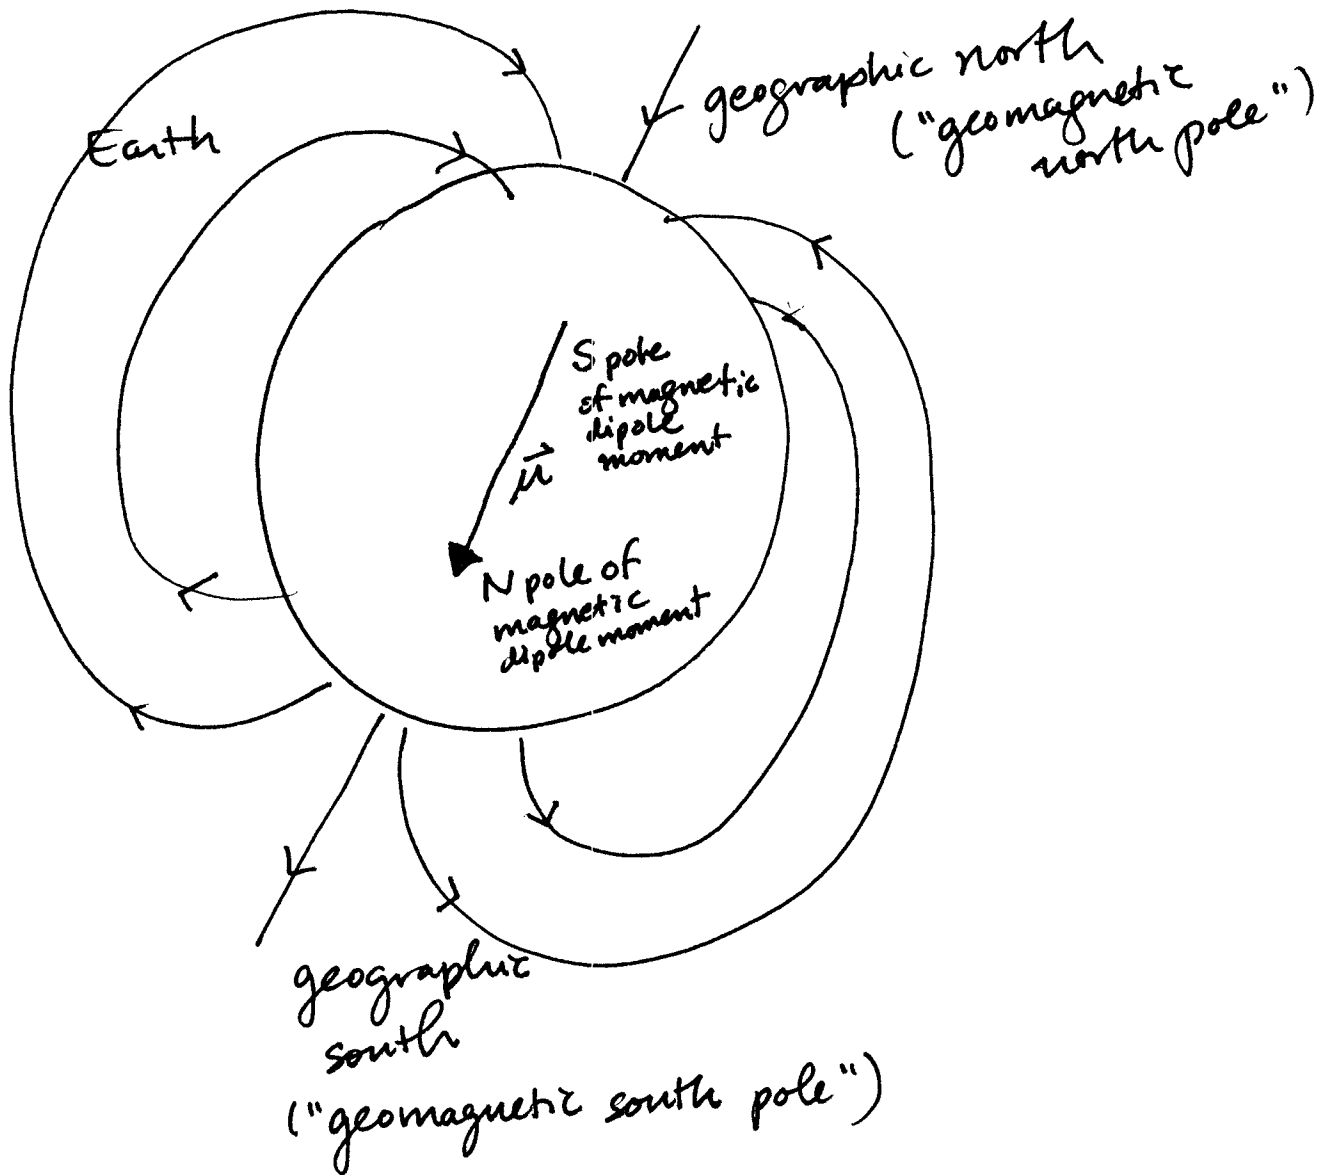 geographic north
("geomagnetic
north pole")
Earth
S pole
of magnetic
dipole
moment
μ⃗
N pole of
magnetic
dipole moment
geographic
south
("geomagnetic south pole")